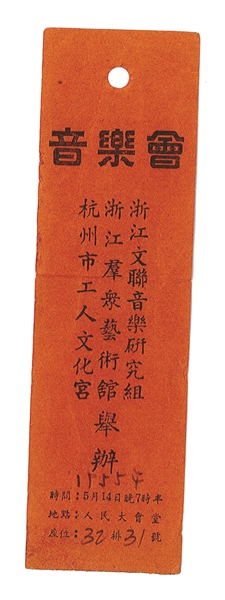 音樂會
浙江文聯音樂研究組
浙江羣衆藝術舘
杭州市工人文化宮
舉辦
時間：5月14日晚7時半
地點：人民大會堂
座位：32排31號